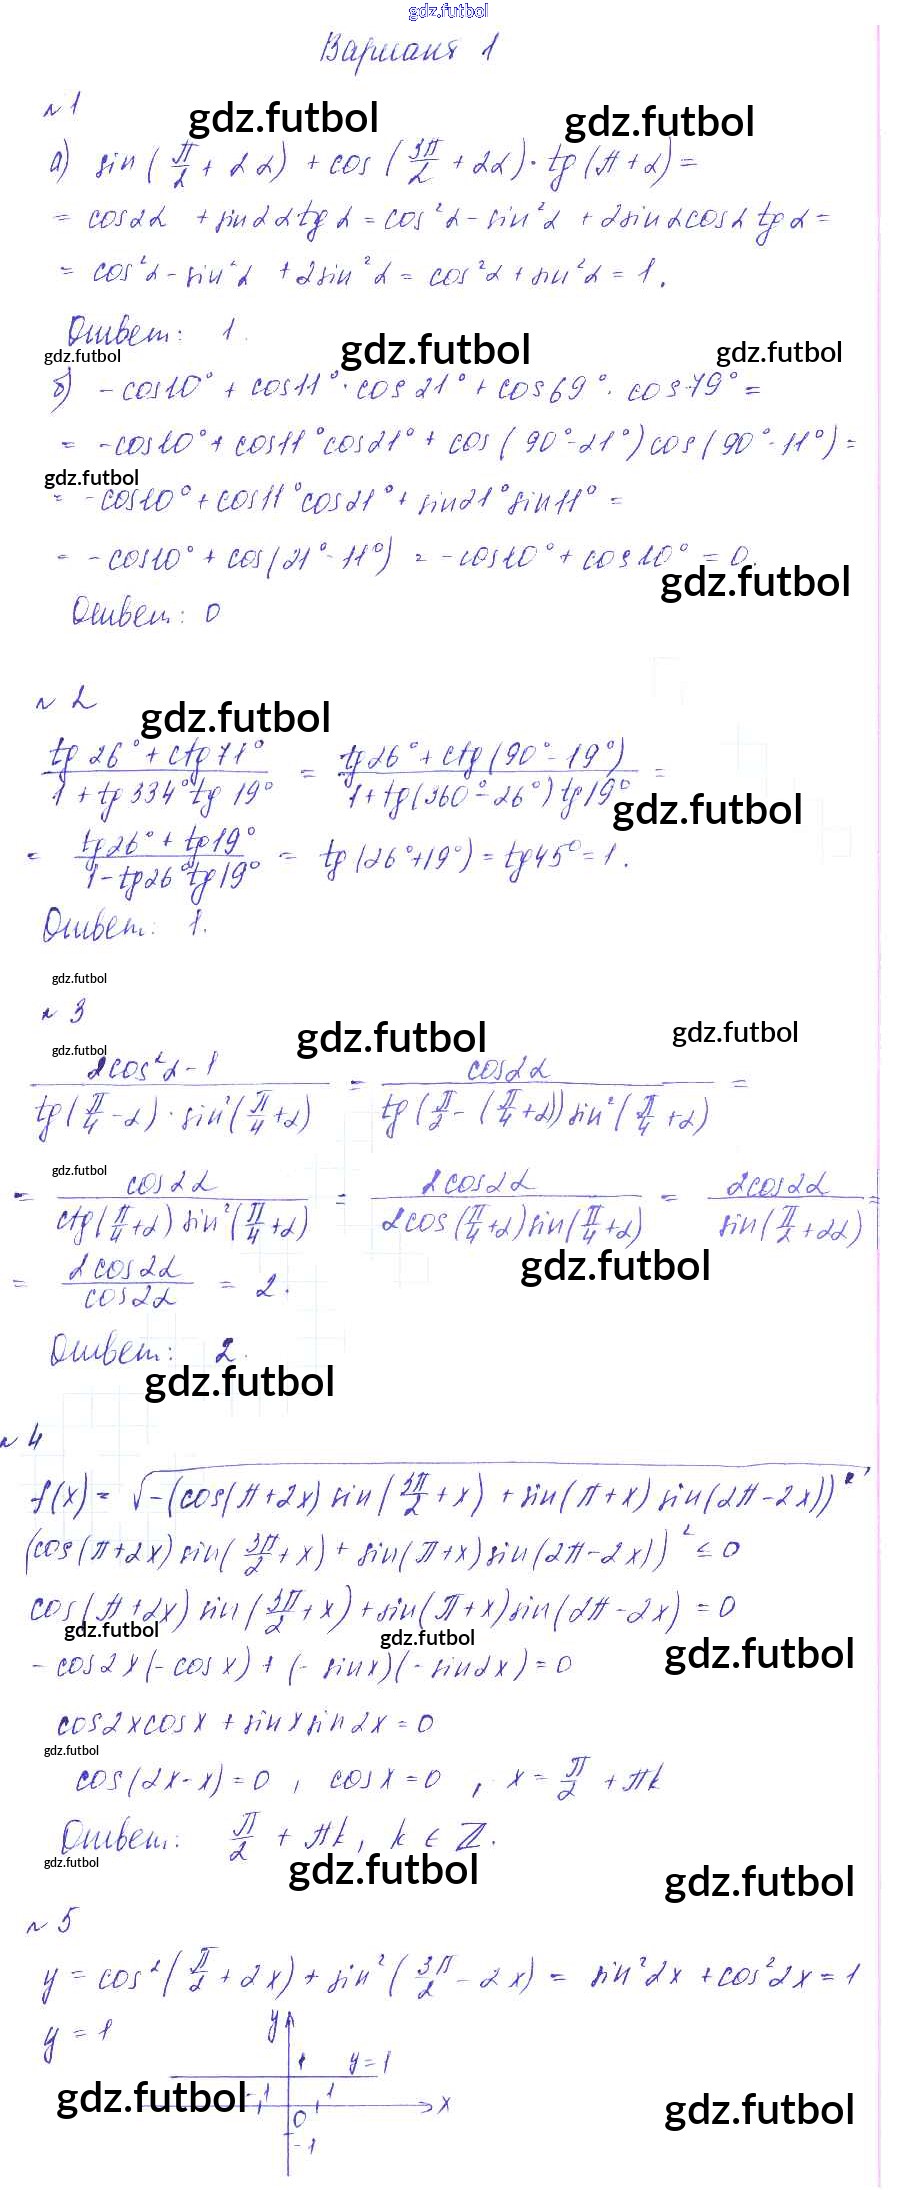 gdz.futbol
Вариант 1
№ 1
gdz.futbol gdz.futbol
а) sin(π/2 + 2α) + cos(3π/2 + 2α) · tg(π + α) =
= cos2α + sin2α tgα = cos²α - sin²α + 2sinαcosα tgα =
= cos²α - sin²α + 2sin²α = cos²α + sin²α = 1.
Ответ: 1.
gdz.futbol gdz.futbol gdz.futbol
б) -cos10° + cos11° · cos21° + cos69° · cos79° =
= -cos10° + cos11°cos21° + cos(90°-21°)cos(90°-11°) =
gdz.futbol
= -cos10° + cos11°cos21° + sin21°sin11° =
= -cos10° + cos(21°-11°) = -cos10° + cos10° = 0.
gdz.futbol
Ответ: 0
№ 2
gdz.futbol
(tg26° + ctg71°)/(1 + tg334°tg19°) = (tg26° + ctg(90°-19°))/(1 + tg(360°-26°)tg19°) =
gdz.futbol
= (tg26° + tg19°)/(1 - tg26°tg19°) = tg(26°+19°) = tg45° = 1.
Ответ: 1.
gdz.futbol
№ 3
gdz.futbol gdz.futbol
gdz.futbol
(2cos²α - 1)/(tg(π/4 - α) · sin²(π/4 + α)) = cos2α/(tg(π/2 - (π/4 + α))sin²(π/4 + α)) =
gdz.futbol
= cos2α/(ctg(π/4 + α)sin²(π/4 + α)) = 2cos2α/(2cos(π/4 + α)sin(π/4 + α)) = 2cos2α/sin(π/2 + 2α) =
gdz.futbol
= 2cos2α/cos2α = 2.
Ответ: 2.
gdz.futbol
№ 4
f(x) = √(-(cos(π+2x)sin(3π/2 + x) + sin(π+x)sin(2π-2x))²),
(cos(π+2x)sin(3π/2 + x) + sin(π+x)sin(2π-2x))² ≤ 0
cos(π+2x)sin(3π/2 + x) + sin(π+x)sin(2π-2x) = 0
gdz.futbol gdz.futbol gdz.futbol
-cos2x(-cosx) + (-sinx)(-sin2x) = 0
cos2xcosx + sinxsin2x = 0
gdz.futbol
cos(2x-x) = 0, cosx = 0, x = π/2 + πk
Ответ: π/2 + πk, k ∈ Z.
gdz.futbol gdz.futbol gdz.futbol
№ 5
y = cos²(π/2 + 2x) + sin²(3π/2 - 2x) = sin²2x + cos²2x = 1
y = 1
y
1 y=1
gdz.futbol -1 1 x gdz.futbol
0
-1